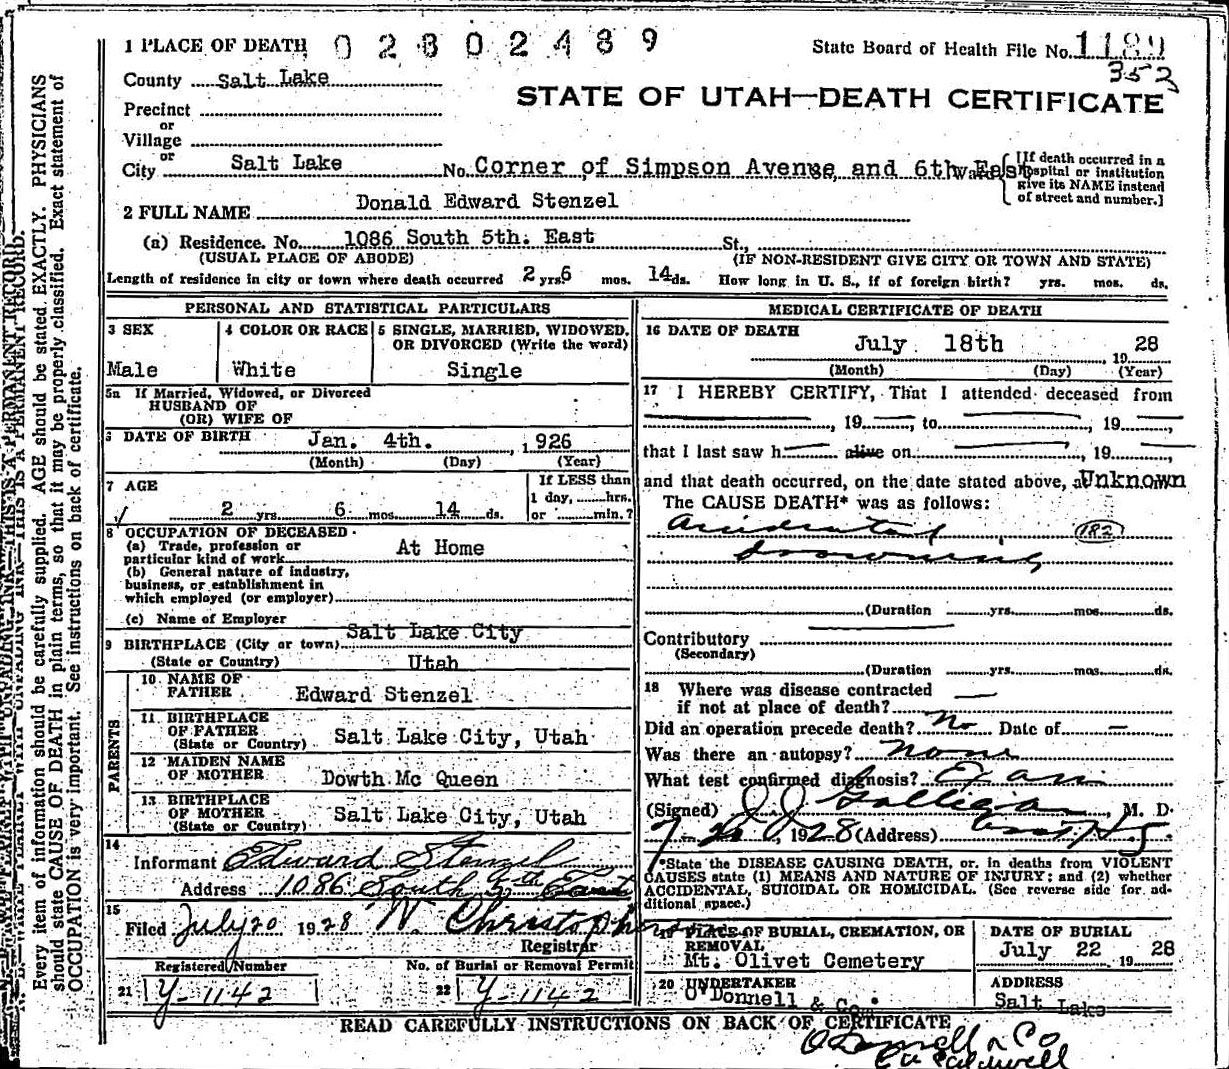 1 PLACE OF DEATH 02802489 State Board of Health File No. 1189
352
County Salt Lake
STATE OF UTAH—DEATH CERTIFICATE
Precinct
or
Village
or
City Salt Lake No. Corner of Simpson Avenue and 6th East
[If death occurred in a hospital or institution give its NAME instead of street and number.]
2 FULL NAME Donald Edward Stenzel
(a) Residence. No. 1086 South 5th. East St.,
(USUAL PLACE OF ABODE) (IF NON-RESIDENT GIVE CITY OR TOWN AND STATE)
Length of residence in city or town where death occurred 2 yrs. 6 mos. 14 ds. How long in U. S., if of foreign birth? yrs. mos. ds.
PERSONAL AND STATISTICAL PARTICULARS
3 SEX
Male
4 COLOR OR RACE
White
5 SINGLE, MARRIED, WIDOWED, OR DIVORCED (Write the word)
Single
5a If Married, Widowed, or Divorced
HUSBAND OF
(OR) WIFE OF
DATE OF BIRTH Jan. 4th. 1926
(Month) (Day) (Year)
7 AGE
2 yrs. 6 mos. 14 ds.
If LESS than
1 day, hrs.
or min.?
8 OCCUPATION OF DECEASED
(a) Trade, profession or
particular kind of work At Home
(b) General nature of industry,
business, or establishment in
which employed (or employer)
(c) Name of Employer
9 BIRTHPLACE (City or town) Salt Lake City
(State or Country) Utah
PARENTS
10 NAME OF
FATHER Edward Stenzel
11 BIRTHPLACE
OF FATHER
(State or Country) Salt Lake City, Utah
12 MAIDEN NAME
OF MOTHER Dowth Mc Queen
13 BIRTHPLACE
OF MOTHER
(State or Country) Salt Lake City, Utah
14
Informant Edward Stenzel
Address 1086 South 5th East
15
Filed July 20 1928
Registrar
Registered Number No. of Burial or Removal Permit
21 Y-1142 22 Y-1142
MEDICAL CERTIFICATE OF DEATH
16 DATE OF DEATH
July 18th 1928
(Month) (Day) (Year)
17 I HEREBY CERTIFY, That I attended deceased from
, 19 , to , 19 ,
that I last saw h alive on , 19 ,
and that death occurred, on the date stated above, at Unknown m
The CAUSE DEATH* was as follows:
Accidental 182
drowning
(Duration yrs. mos. ds.
Contributory
(Secondary)
(Duration yrs. mos. ds.
18 Where was disease contracted
if not at place of death?
Did an operation precede death? No Date of —
Was there an autopsy? none
What test confirmed diagnosis? Exam
(Signed) J J Galligan, M. D.
, 1928 (Address)
*State the DISEASE CAUSING DEATH, or, in deaths from VIOLENT
CAUSES state (1) MEANS AND NATURE OF INJURY; and (2) whether
ACCIDENTAL, SUICIDAL OR HOMICIDAL. (See reverse side for additional space.)
19 PLACE OF BURIAL, CREMATION, OR
REMOVAL
Mt. Olivet Cemetery
DATE OF BURIAL
July 22 1928
20 UNDERTAKER
O'Donnell & Co.
ADDRESS
Salt Lake
READ CAREFULLY INSTRUCTIONS ON BACK OF CERTIFICATE
O'Donnell & Co
Caldwell
Every item of information should be carefully supplied. AGE should be stated EXACTLY. PHYSICIANS
should state CAUSE OF DEATH in plain terms, so that it may be properly classified. Exact statement of
OCCUPATION is very important. See instructions on back of certificate.